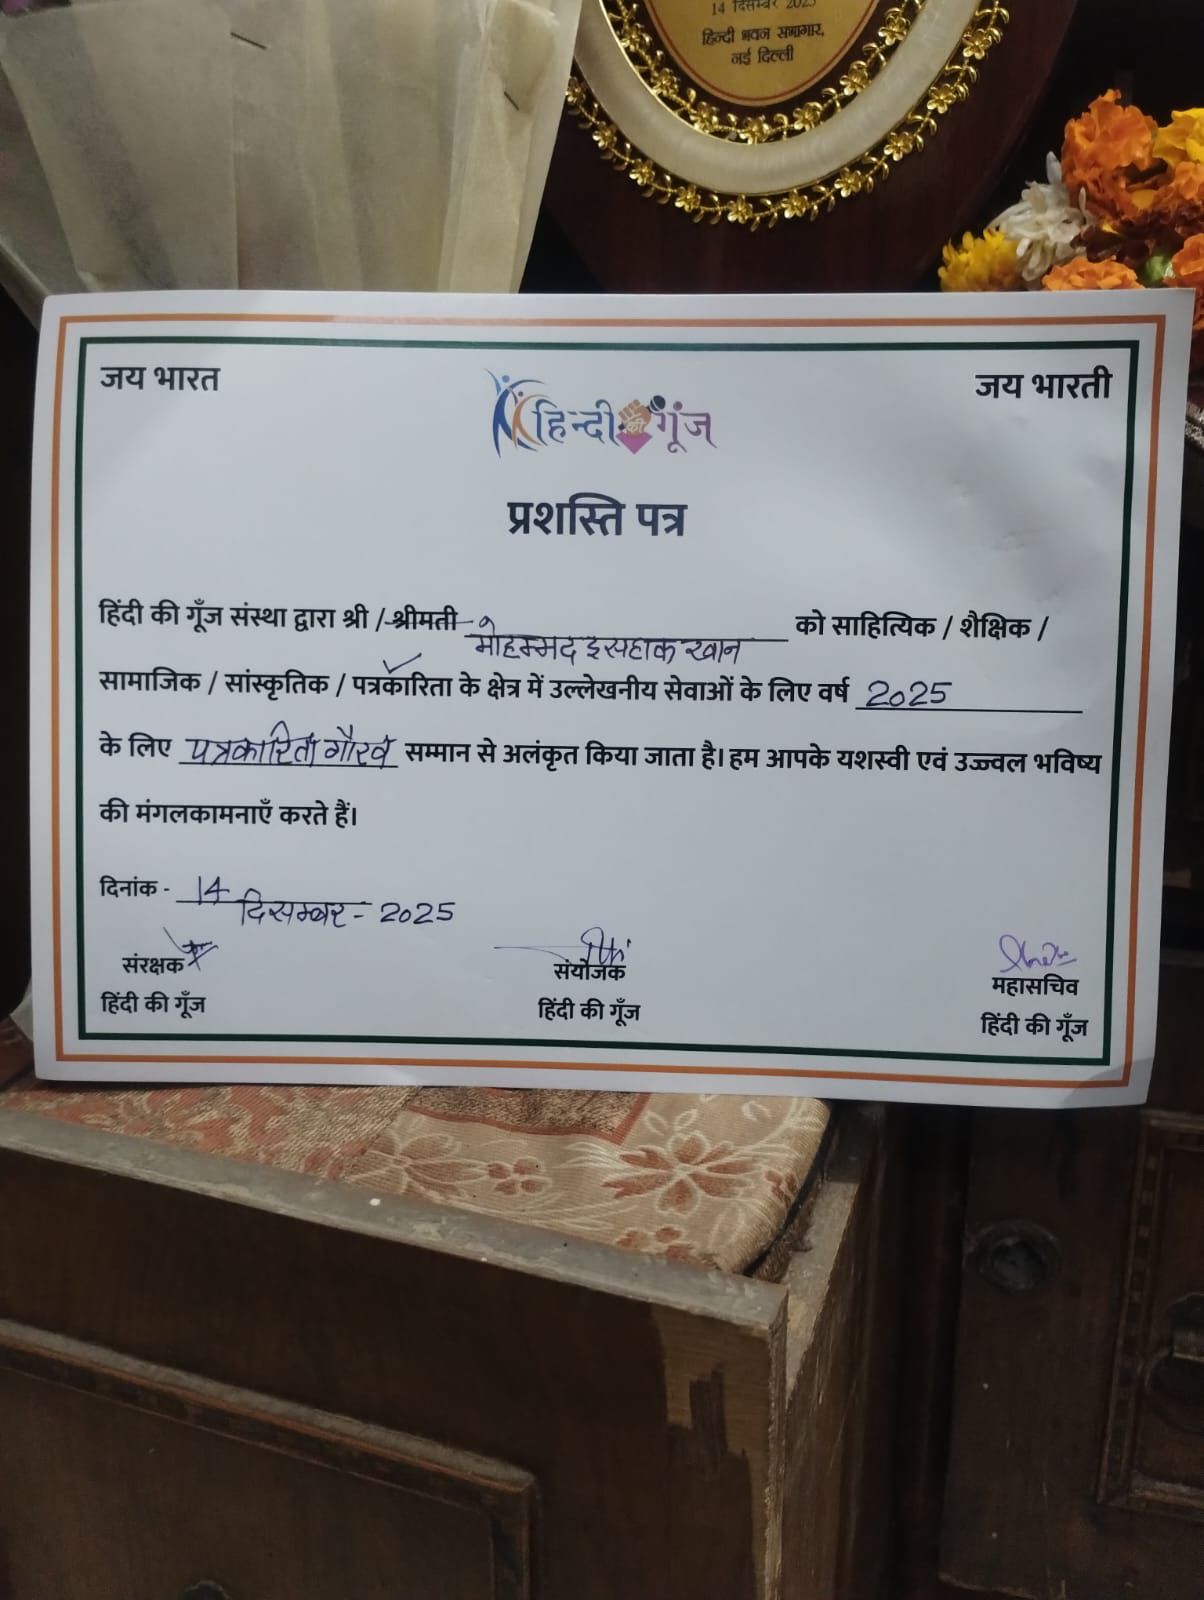 14 दिसम्बर 2025
हिन्दी भवन सभागार,
नई दिल्ली
जय भारत
जय भारती
हिन्दी की गूंज
प्रशस्ति पत्र
हिंदी की गूँज संस्था द्वारा श्री / श्रीमती मोहम्मद इसहाक खान को साहित्यिक / शैक्षिक /
सामाजिक / सांस्कृतिक / पत्रकारिता के क्षेत्र में उल्लेखनीय सेवाओं के लिए वर्ष 2025
के लिए पत्रकारिता गौरव सम्मान से अलंकृत किया जाता है। हम आपके यशस्वी एवं उज्ज्वल भविष्य
की मंगलकामनाएँ करते हैं।
दिनांक - 14 दिसम्बर - 2025
संरक्षक
हिंदी की गूँज
संयोजक
हिंदी की गूँज
महासचिव
हिंदी की गूँज